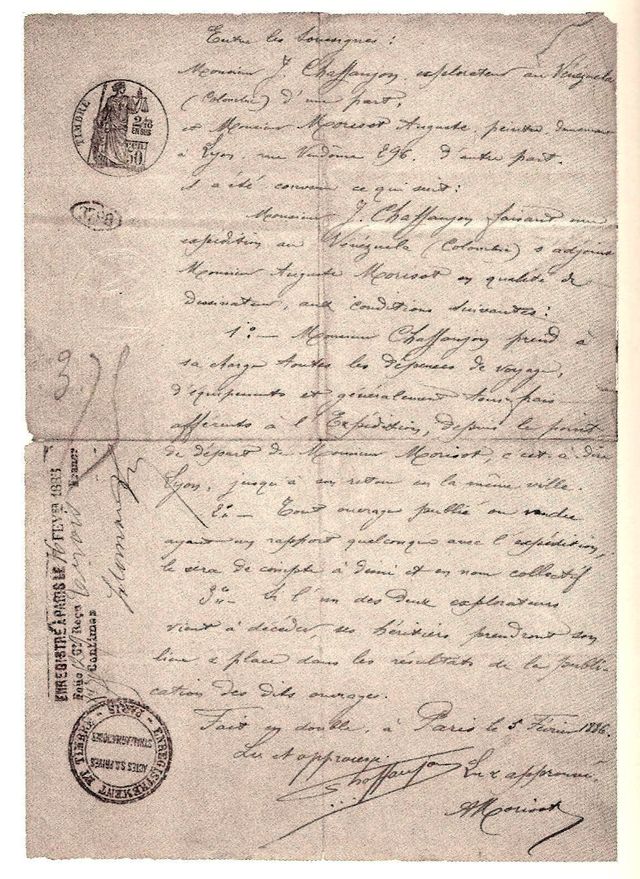 Entre les soussignés :
Monsieur J. Chaffanjon, explorateur au Vénézuela
(Colombie) d'une part,
et Monsieur Morisot Auguste, peintre demeurant
à Lyon, rue Vendôme 296. d'autre part.
il a été convenu ce qui suit :
Monsieur J. Chaffanjon faisant une
expédition au Vénézuela (Colombie) s'adjoint
Monsieur Auguste Morisot en qualité de
dessinateur, aux conditions suivantes :
1º — Monsieur Chaffanjon prend à
sa charge toutes les dépenses de voyage,
d'équipements et généralement tous frais
afférents à l'Expédition, depuis le point
de départ de Monsieur Morisot, c'est à dire
Lyon, jusqu'à son retour en la même ville.
2º — Tout ouvrage publié ou vendu
ayant un rapport quelconque avec l'expédition,
le sera de compte à demi et en nom collectif
3º — Si l'un des deux explorateurs
vient à décéder, ses héritiers prendront son
lieu & place dans les résultats de la publi-
cation des dits ouvrages.
Fait en double, à Paris le 5 Février 1886.
Lu et approuvé
Chaffanjon
Lu & approuvé
AMorisot
TIMBRE
2/10
EN SUS
50
3.
ENREGISTRÉ A PARIS LE FÉVR 1886
Folio Cse Reçu francs
Centimes
ENREGISTREMENT ET TIMBRE - PARIS -
ACTES S.S. PRIVÉS